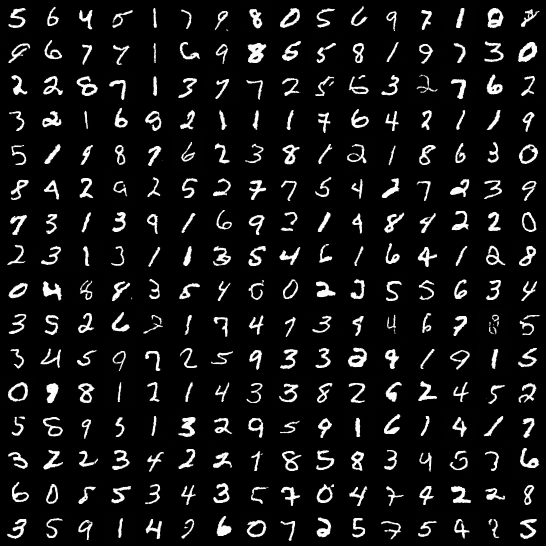 5 6 4 5 1 7 9 8 0 5 6 9 7 1 8
9 6 7 7 1 6 9 8 6 5 8 1 9 7 3 0
2 2 8 7 1 3 7 7 2 5 6 3 2 7 6 2
3 2 1 6 8 2 1 1 1 7 6 4 2 1 1 9
5 1 9 8 9 6 2 3 8 1 2 1 8 6 3 0
8 4 2 9 2 5 2 7 7 5 4 2 7 2 3 9
7 3 1 3 9 1 6 9 2 1 9 8 9 2 2 0
2 3 1 3 1 1 3 5 4 6 1 6 4 1 2 8
0 4 8 8 3 5 4 0 0 2 3 5 5 6 3 4
3 5 2 6 2 1 7 4 7 3 9 4 6 7 8 5
3 4 5 9 7 2 5 9 3 3 2 9 1 9 1 5
0 9 8 1 2 1 4 3 3 8 2 6 2 4 5 2
5 8 9 5 1 3 2 9 5 9 1 6 1 4 1 7
3 2 2 3 4 2 2 1 8 5 8 3 9 5 3 6
6 0 8 5 3 4 3 5 7 0 4 7 9 2 2 8
3 5 9 1 4 2 6 0 7 2 5 7 5 4 5